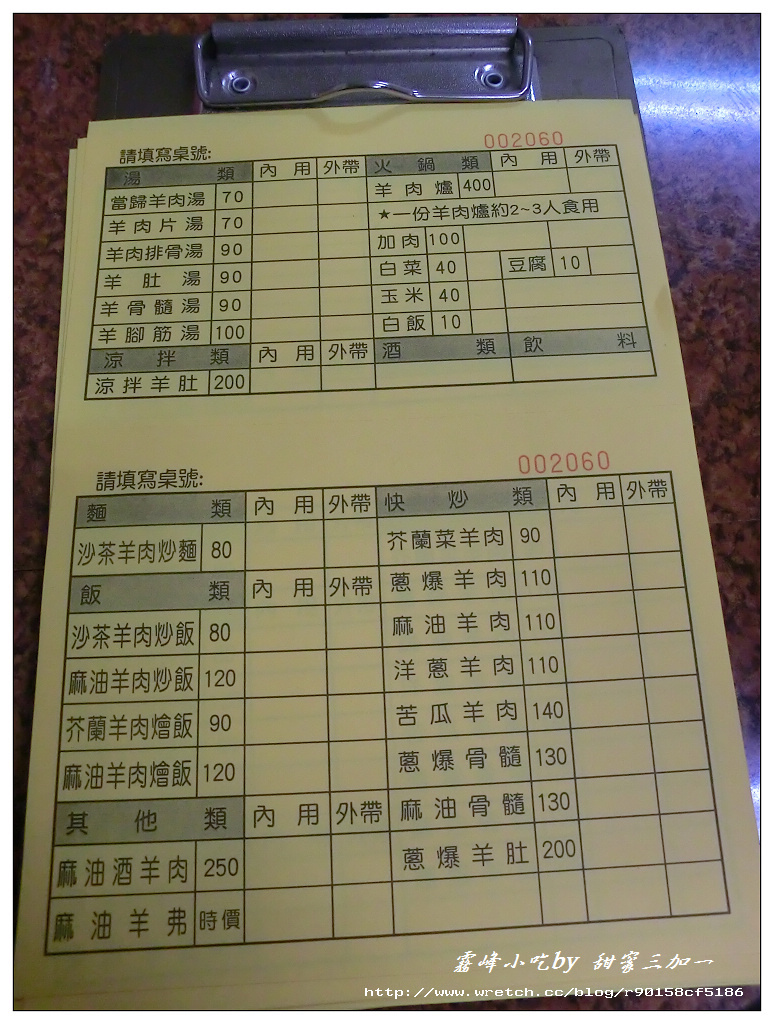 002060
請填寫桌號:
湯 類 內 用 外帶 火 鍋 類 內 用 外帶
當歸羊肉湯 70 羊 肉 爐 400
羊 肉 片 湯 70 ★一份羊肉爐約2~3人食用
羊肉排骨湯 90 加 肉 100
羊 肚 湯 90 白 菜 40 豆腐 10
羊 骨 髓 湯 90 玉 米 40
羊 腳 筋 湯 100 白 飯 10
涼 拌 類 內 用 外帶 酒 類 飲 料
涼 拌 羊 肚 200
002060
請填寫桌號:
麵 類 內 用 外帶 快 炒 類 內 用 外帶
沙茶羊肉炒麵 80 芥蘭菜羊肉 90
飯 類 內 用 外帶 蔥 爆 羊 肉 110
沙茶羊肉炒飯 80 麻 油 羊 肉 110
麻油羊肉炒飯 120 洋 蔥 羊 肉 110
芥蘭羊肉燴飯 90 苦 瓜 羊 肉 140
麻油羊肉燴飯 120 蔥 爆 骨 髓 130
其 他 類 內 用 外帶 麻 油 骨 髓 130
麻 油 酒 羊 肉 250 蔥 爆 羊 肚 200
麻 油 羊 弗 時價
霧峰小吃by 甜蜜三加一
http://www.wretch.cc/blog/r90158cf5186